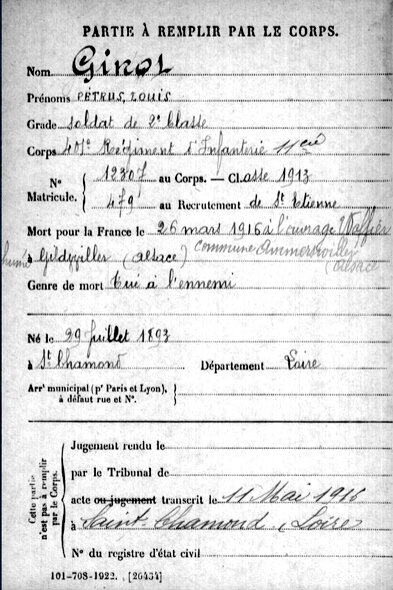 PARTIE À REMPLIR PAR LE CORPS.
Nom Ginot
Prénoms PÉTRUS, LOUIS
Grade Soldat de 2e Classe
Corps 407e Régiment d'Infanterie 11e Cie
No Matricule. { 12307 au Corps. — Classe 1913
479 au Recrutement de St Etienne
Mort pour la France le 26 mars 1916 à l'ouvrage
inhumé à Gildwiller (alsace) commune Ammerzwiller (alsace
Genre de mort Tué à l'ennemi
Né le 29 Juillet 1893
à St Chamond Département Loire
Arrt municipal (pr Paris et Lyon), à défaut rue et No. }
Cette partie n'est pas à remplir par le Corps.
Jugement rendu le
par le Tribunal de
acte ou jugement transcrit le 11 Mai 1916
à Saint-Chamond, Loire
No du registre d'état civil
101-708-1922. [26434]